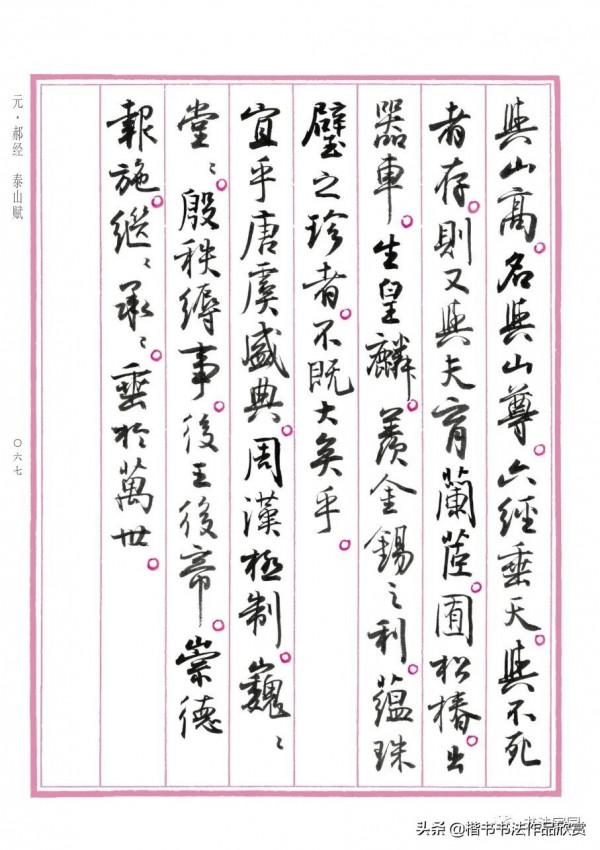 與山高。名與山尊。六經垂天。與不死
者存。則又與夫育蘭茝。囿松椿。出
器車。生皇麟。羨金錫之利。蘊珠
璧之珍者。不既大矣乎。
宜乎唐虞盛典。周漢極制。巍〻
堂〻。殷秩縟事。後王後帝。崇德
報施。繼〻承〻。垂於萬世。
元·郝经 泰山赋
〇六七
头条 @楷书书法作品欣赏